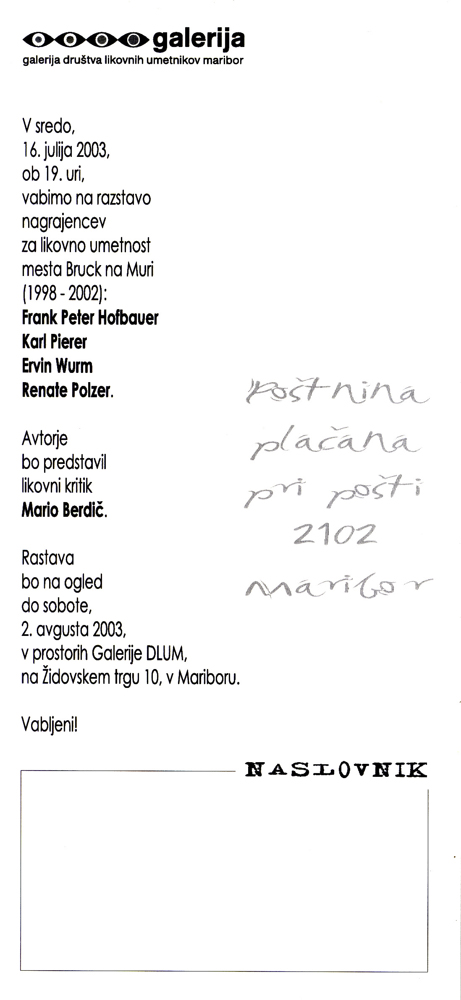 galerija
galerija društva likovnih umetnikov maribor
V sredo,
16. julija 2003,
ob 19. uri,
vabimo na razstavo
nagrajencev
za likovno umetnost
mesta Bruck na Muri
(1998 - 2002):
Frank Peter Hofbauer
Karl Pierer
Ervin Wurm
Renate Polzer.
Avtorje
bo predstavil
likovni kritik
Mario Berdič.
Rastava
bo na ogled
do sobote,
2. avgusta 2003,
v prostorih Galerije DLUM,
na Židovskem trgu 10, v Mariboru.
Vabljeni!
Poštnina
plačana
pri pošti
2102
Maribor
NASLOVNIK